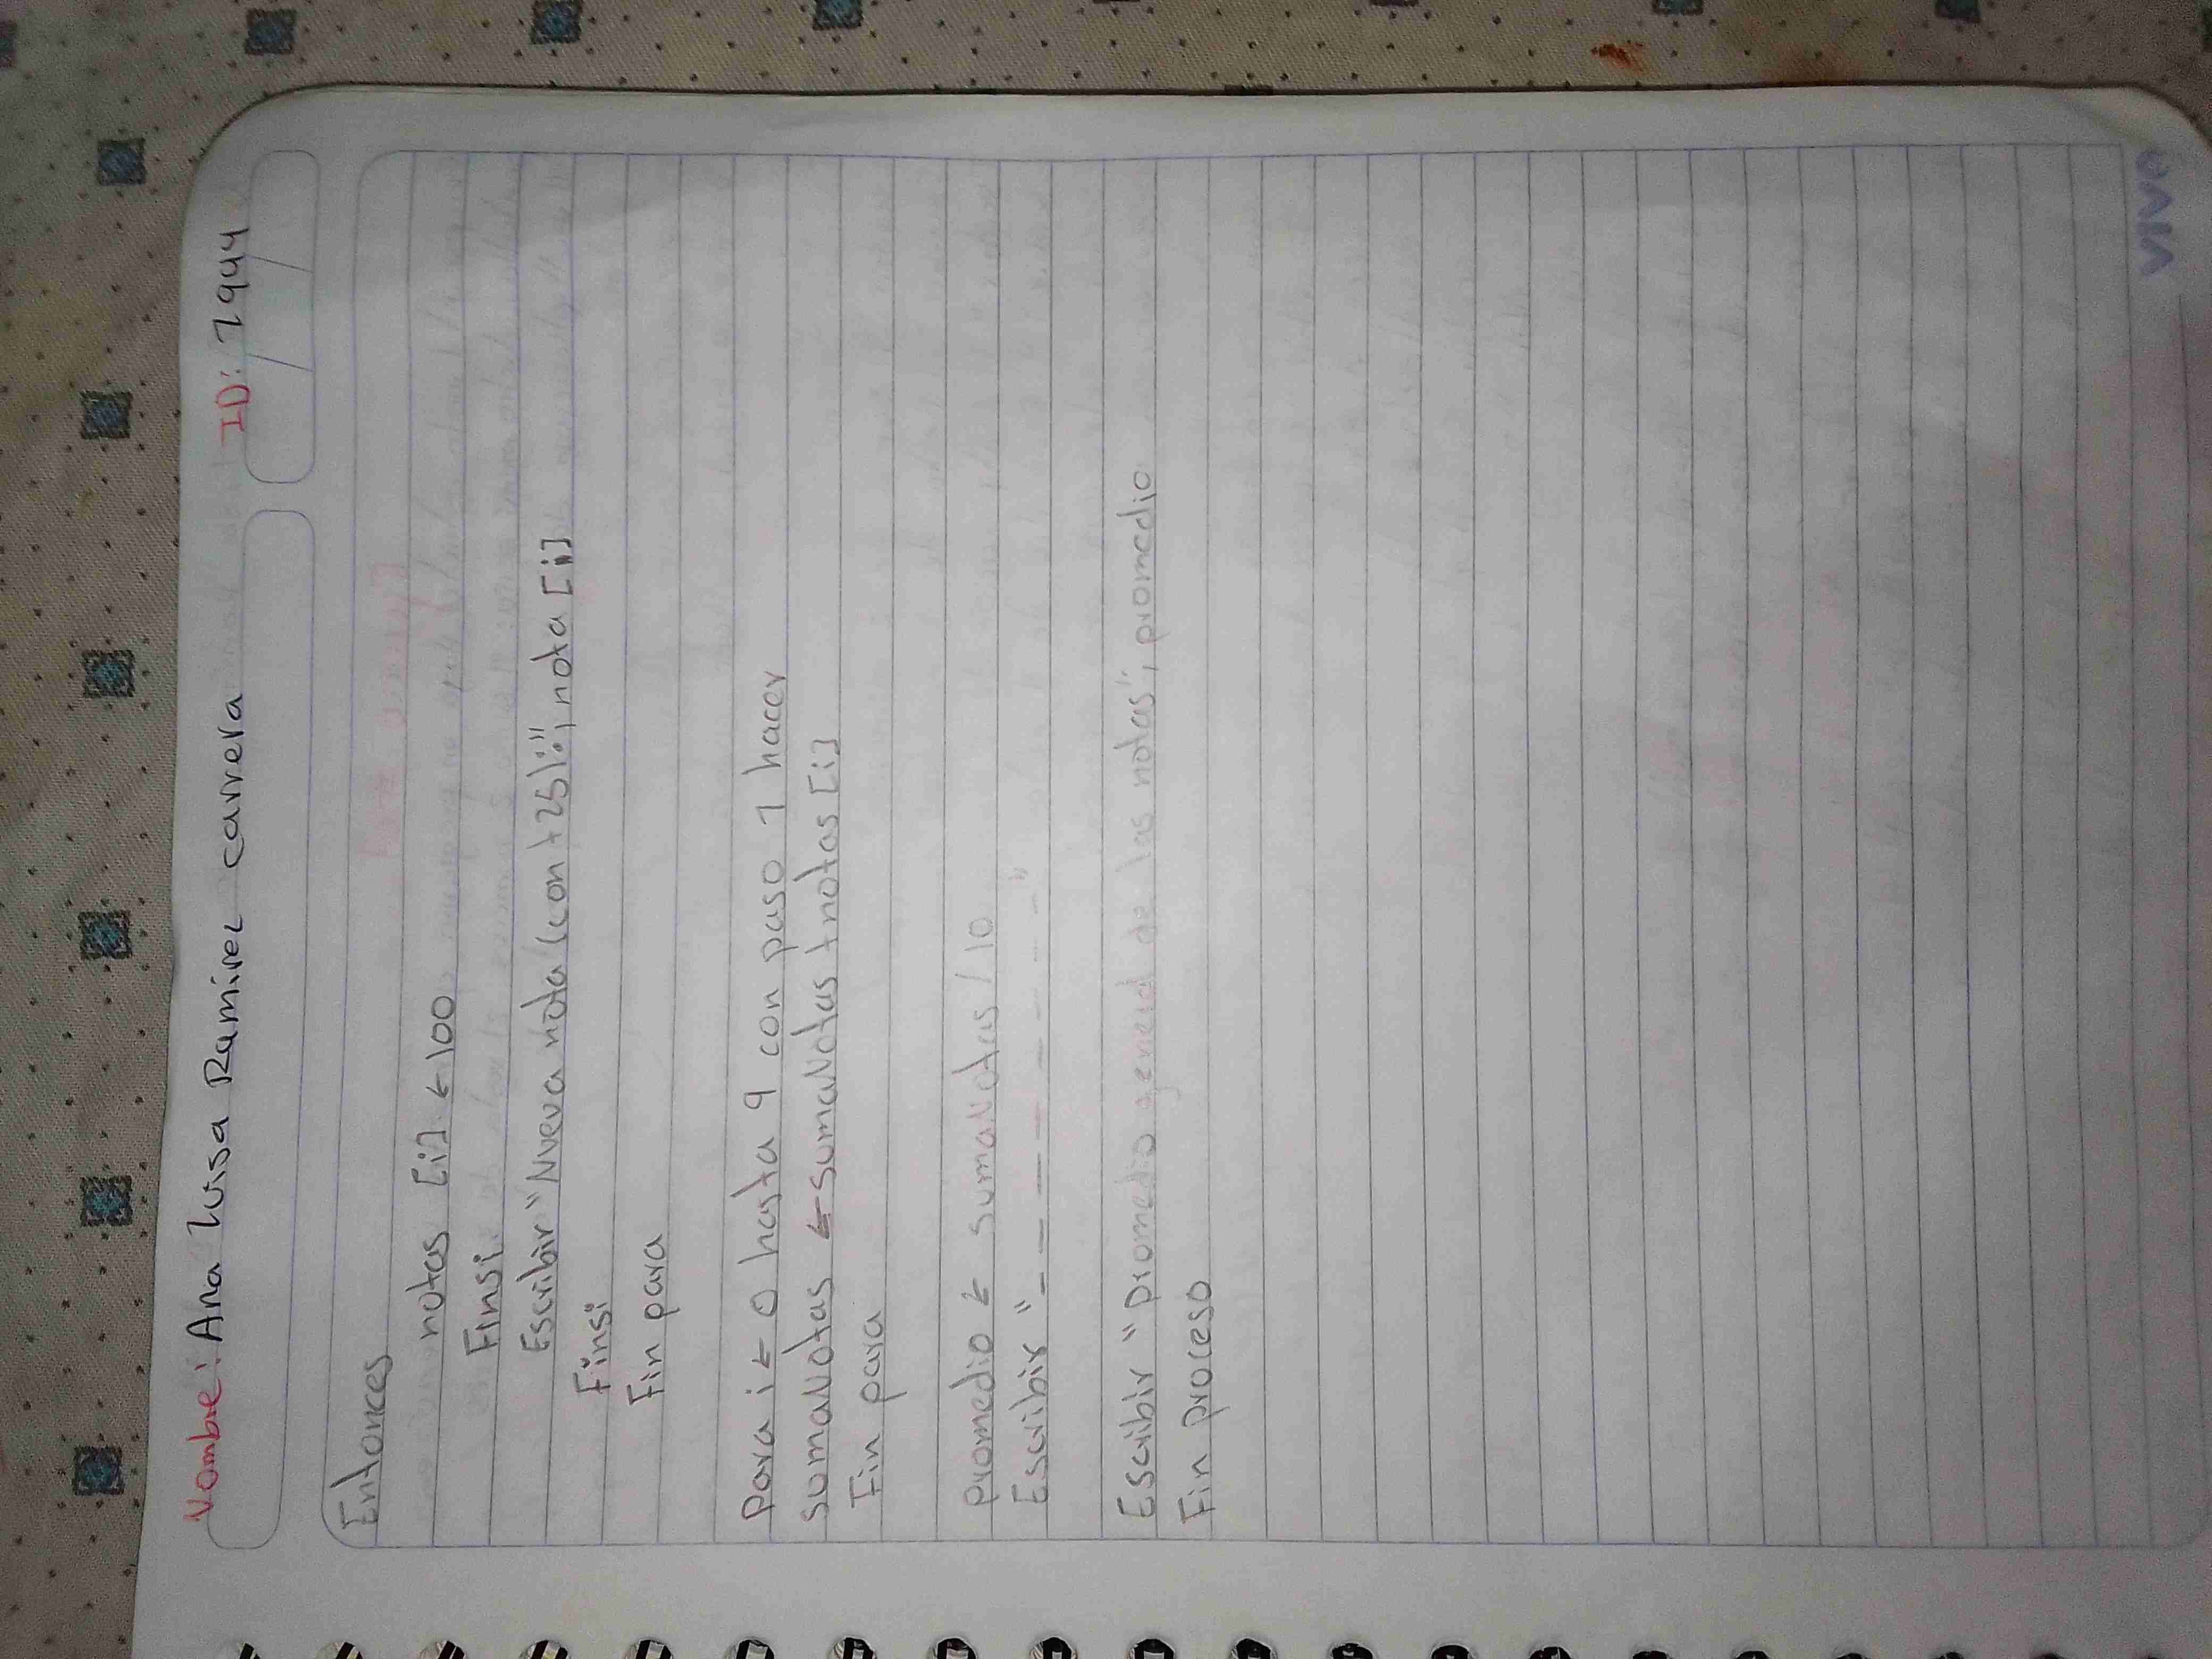 Nombre: Ana Luisa Ramirez carrera ID: 7944
Entonces
notas [i] ← 100
Finsi
Escribir "Nueva nota (con +25):", nota [i]
Finsi
Fin para
para i ← 0 hasta 9 con paso 1 hacer
sumaNotas ← sumaNotas + notas [i]
Fin para
promedio ← sumaNotas / 10
Escribir "- - - - - - - - - -"
Escribir "promedio general de las notas", promedio
Fin proceso
VIVA